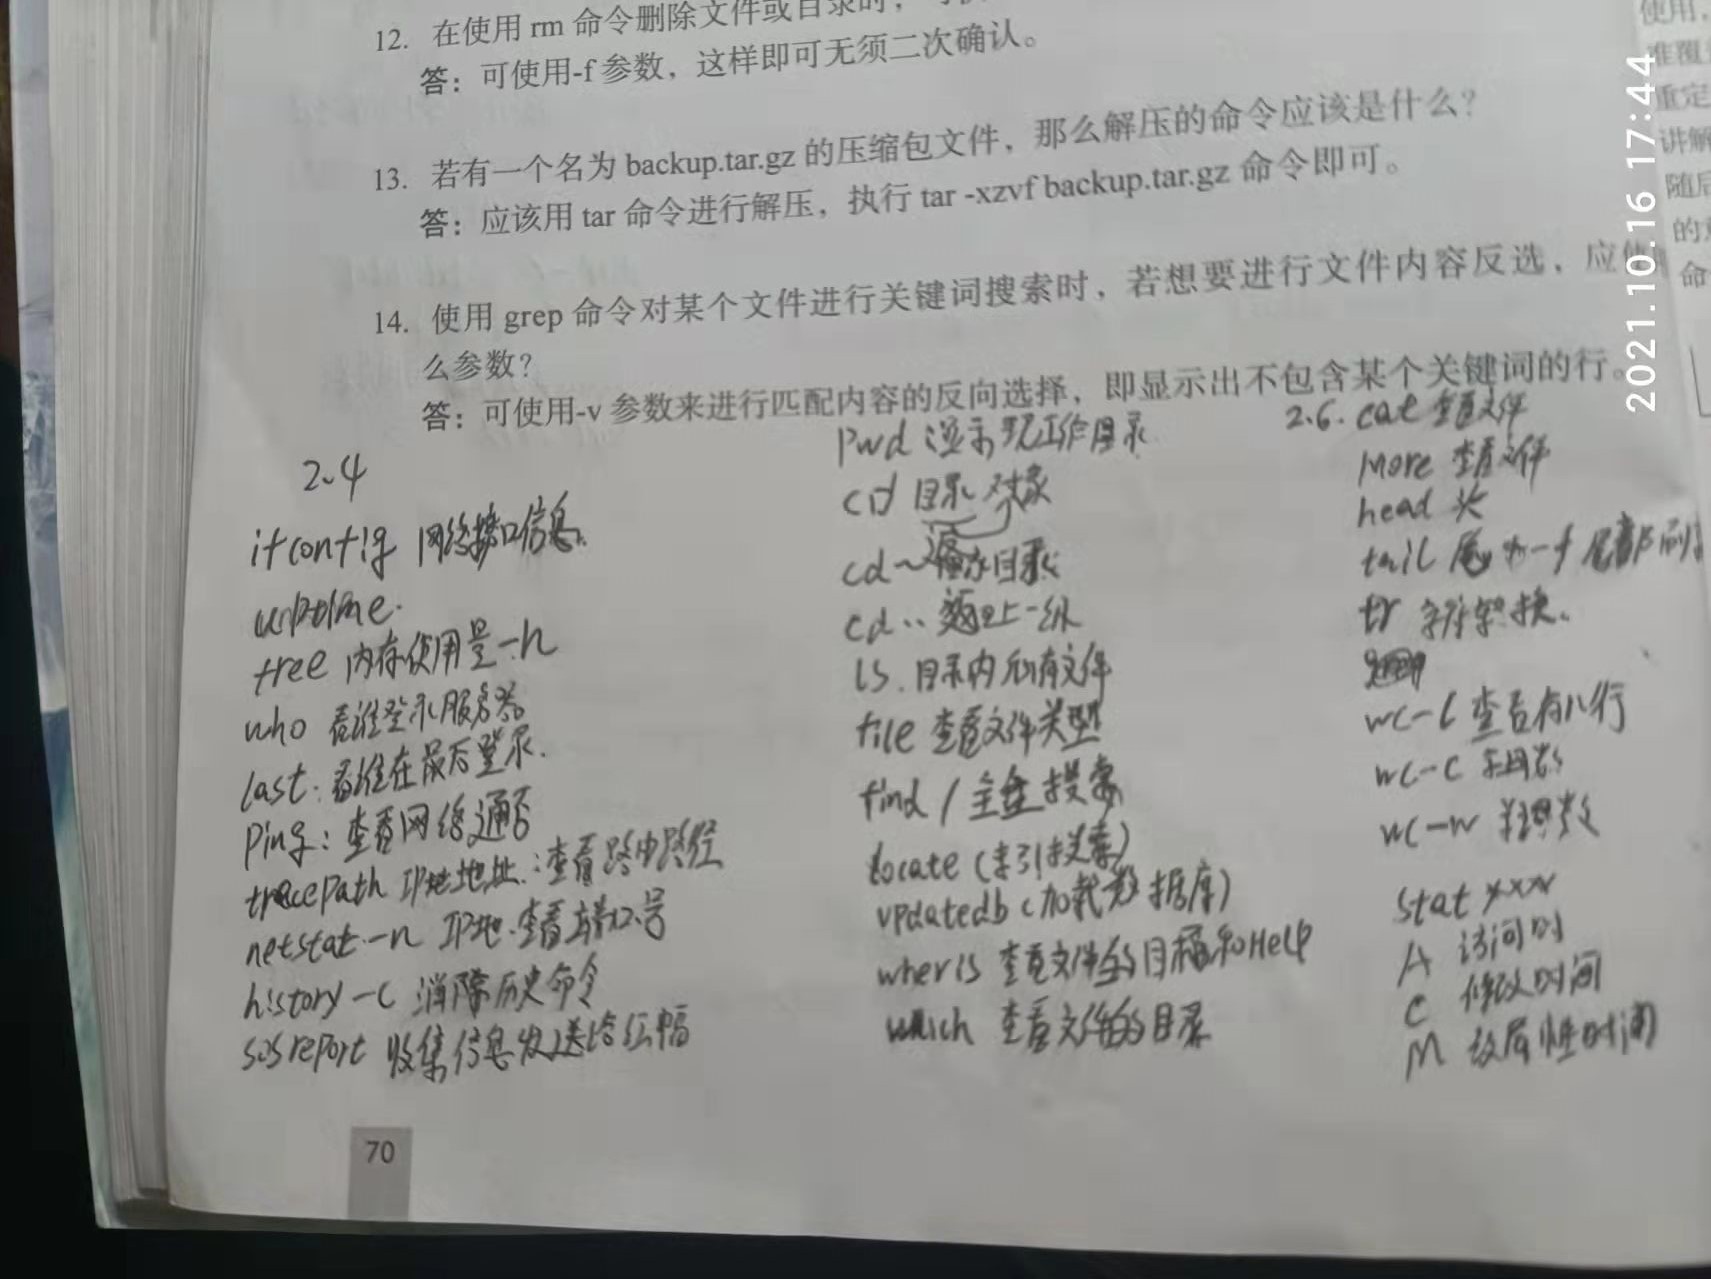 12. 在使用 rm 命令删除文件或目录时，可
答：可使用-f 参数，这样即可无须二次确认。
13. 若有一个名为 backup.tar.gz 的压缩包文件，那么解压的命令应该是什么？
答：应该用 tar 命令进行解压，执行 tar -xzvf backup.tar.gz 命令即可。
14. 使用 grep 命令对某个文件进行关键词搜索时，若想要进行文件内容反选，应使
么参数？
答：可使用-v 参数来进行匹配内容的反向选择，即显示出不包含某个关键词的行。
2.4
ifconfig 网络接口信息.
free 内存使用量 -h
who 看谁登录服务器
last: 看谁在最后登录.
Ping: 查看网络通否
tracepath IP地地址: 查看路由路径
netstat -n IP地.查看端口号
history -c 消除历史命令
sosreport 收集信息发送给红帽
pwd 显示现工作目录
cd 目录 对象
cd ~ 目录
cd .. 返回上一级
ls. 目录内所有文件
file 查看文件类型
find / 全盘搜索
locate (索引搜索)
updatedb (加载数据库)
wheris 查看文件的目标和Help
which 查看文件的目录
2.6. cat 查看文件
more 查看文件
head 头
tail 尾 -f
tr 换.
wc -l 查看有几行
wc -c
wc -w 数
stat xxx
A 访问时
C 修改时间
M 改属性时间
70
使用，
准覆
重定
讲解
随后
的
命
2021.10.16 17:44